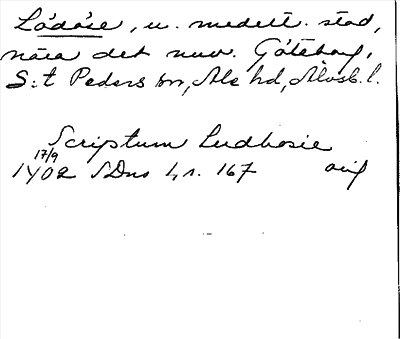 Lödöse, u. medelt. stad,
nära det nuv. Göteborg,
S:t Peders sn, Ale hd, Älvsb. l.
Scriptum Ludhosie
17/9
1402 SDns 1, n. 167 orig